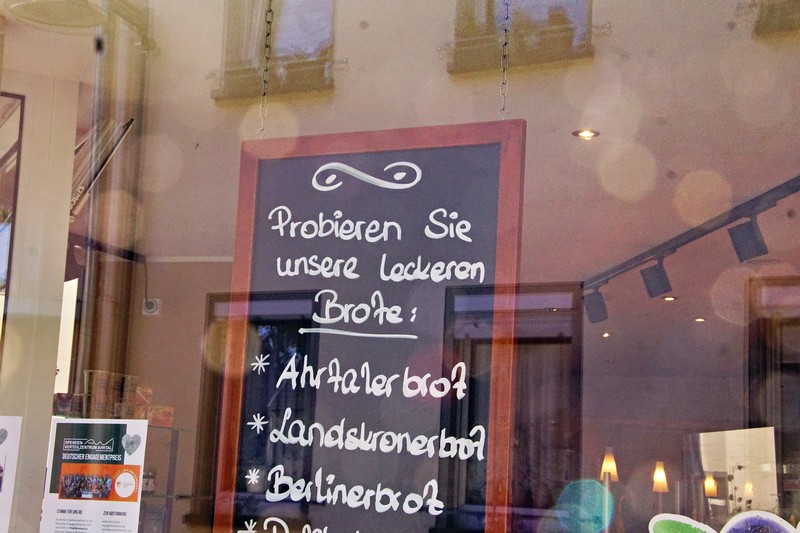 Probieren Sie
unsere leckeren
Brote:
* Ahrtalerbrot
* Landskronerbrot
* Berlinerbrot
*
SPENDEN-
VERTEILZENTRUM AHRTAL
DEUTSCHER ENGAGEMENTPREIS
STIMME FÜR UNS AB
ZUR ABSTIMMUNG